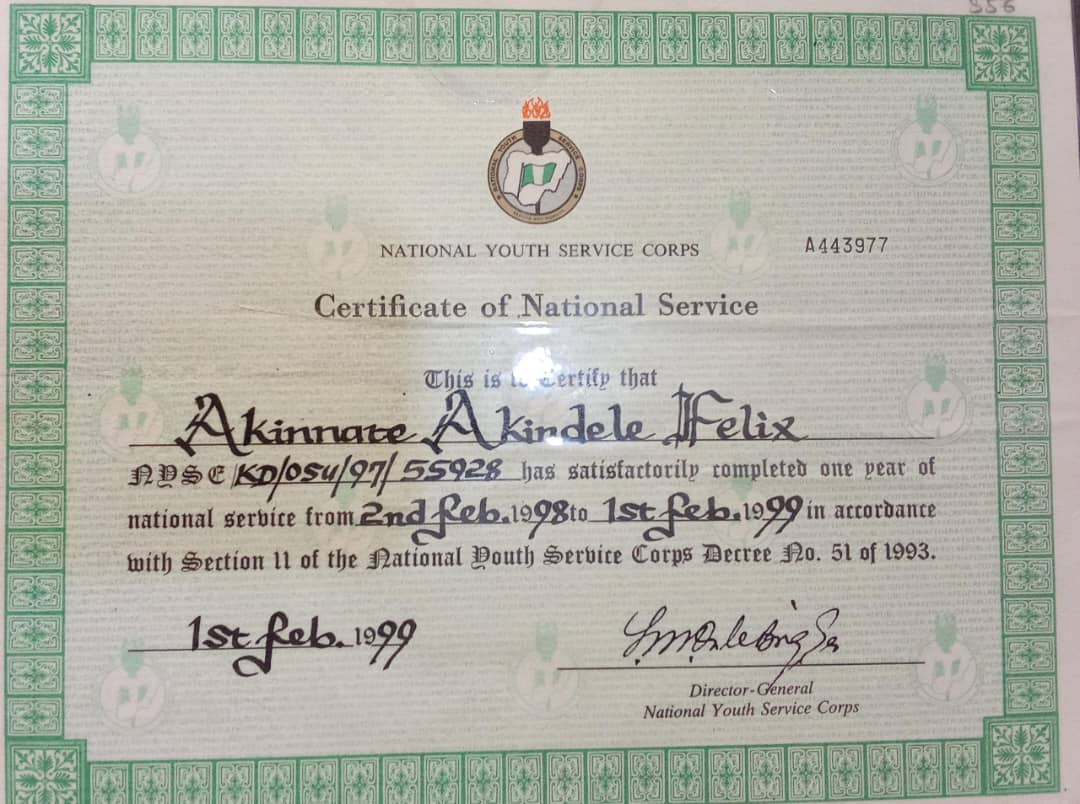 556
NATIONAL YOUTH SERVICE CORPS
NATIONAL YOUTH SERVICE CORPS
A443977
Certificate of National Service
This is to Certify that
Akinnate Akindele Felix
NYSC/KD/OSU/97/55928 has satisfactorily completed one year of
national service from 2nd Feb. 1998 to 1st Feb. 1999 in accordance
with Section 11 of the National Youth Service Corps Decree No. 51 of 1993.
1st Feb. 1999
Director-General
National Youth Service Corps